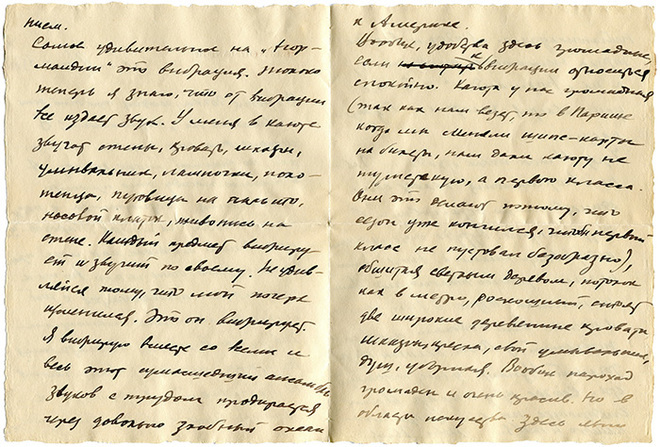 нием.
Самое удивительное на „Нор-
мандии" это вибрация. Только
теперь я знаю, что от вибрации
все издает звук. У меня в каюте
звучат стены, кровать, шкафы,
умывальник, лампочки, поло-
тенца, пуговица на пальто,
носовой платок, живопись на
стене. Каждый предмет вибриру-
ет и звучит по своему. Не удив-
ляйся тому, что мой почерк
изменился. Это он вибрирует.
Я вибрирую вместе со всеми и
весь этот сумасшедший ансамбль
звуков с трудом продирается
через довольно злобный океан
к Америке.
Вообще, удобства здесь громадные,
если к вибрации относиться
спокойно. Каюта у нас громадная
(так как нам везет, то в Париже
когда мы меняли шипс-карты
на билеты, нам дали каюту не
туристскую, а первого класса.
Они это делают потому, что
сезон уже кончился, чтоб первый
класс не пустовал безобразно),
обшитая светлым деревом, потолок
как в метро, роскошный, стоят
две широкие деревянные кровати
шкафы, кресла, свой умывальник,
душ, уборная. Вообще пароход
громаден и очень красив. Но в
области искусства здесь